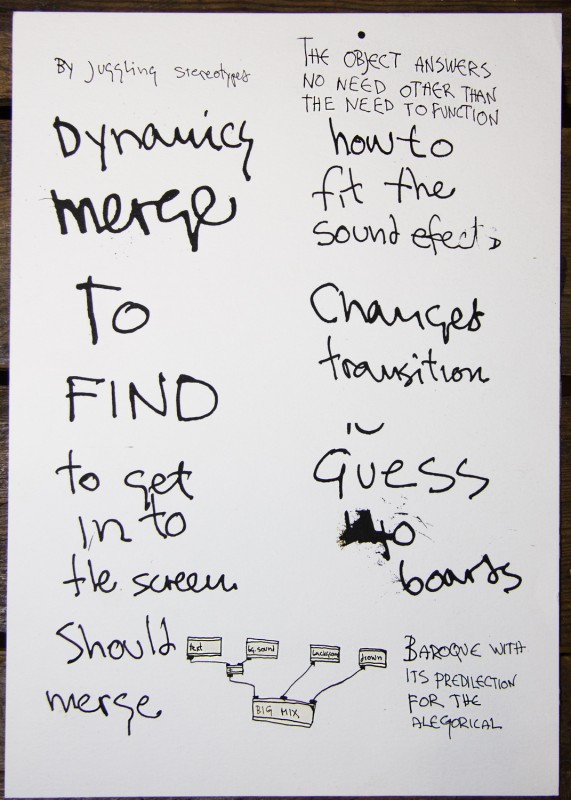 By Juggling stereotypes
Dynamics
merge
To
FIND
to get
in to
the screen.
Should
merge
THE OBJECT ANSWERS
NO NEED OTHER THAN
THE NEED TO FUNCTION
how to
fit the
sound efects
Changes
transition
in
Guess
to
boards
text
bg. sound
BIG MIX
BAROQUE WITH
ITS PREDILECTION
FOR THE
ALEGORICAL